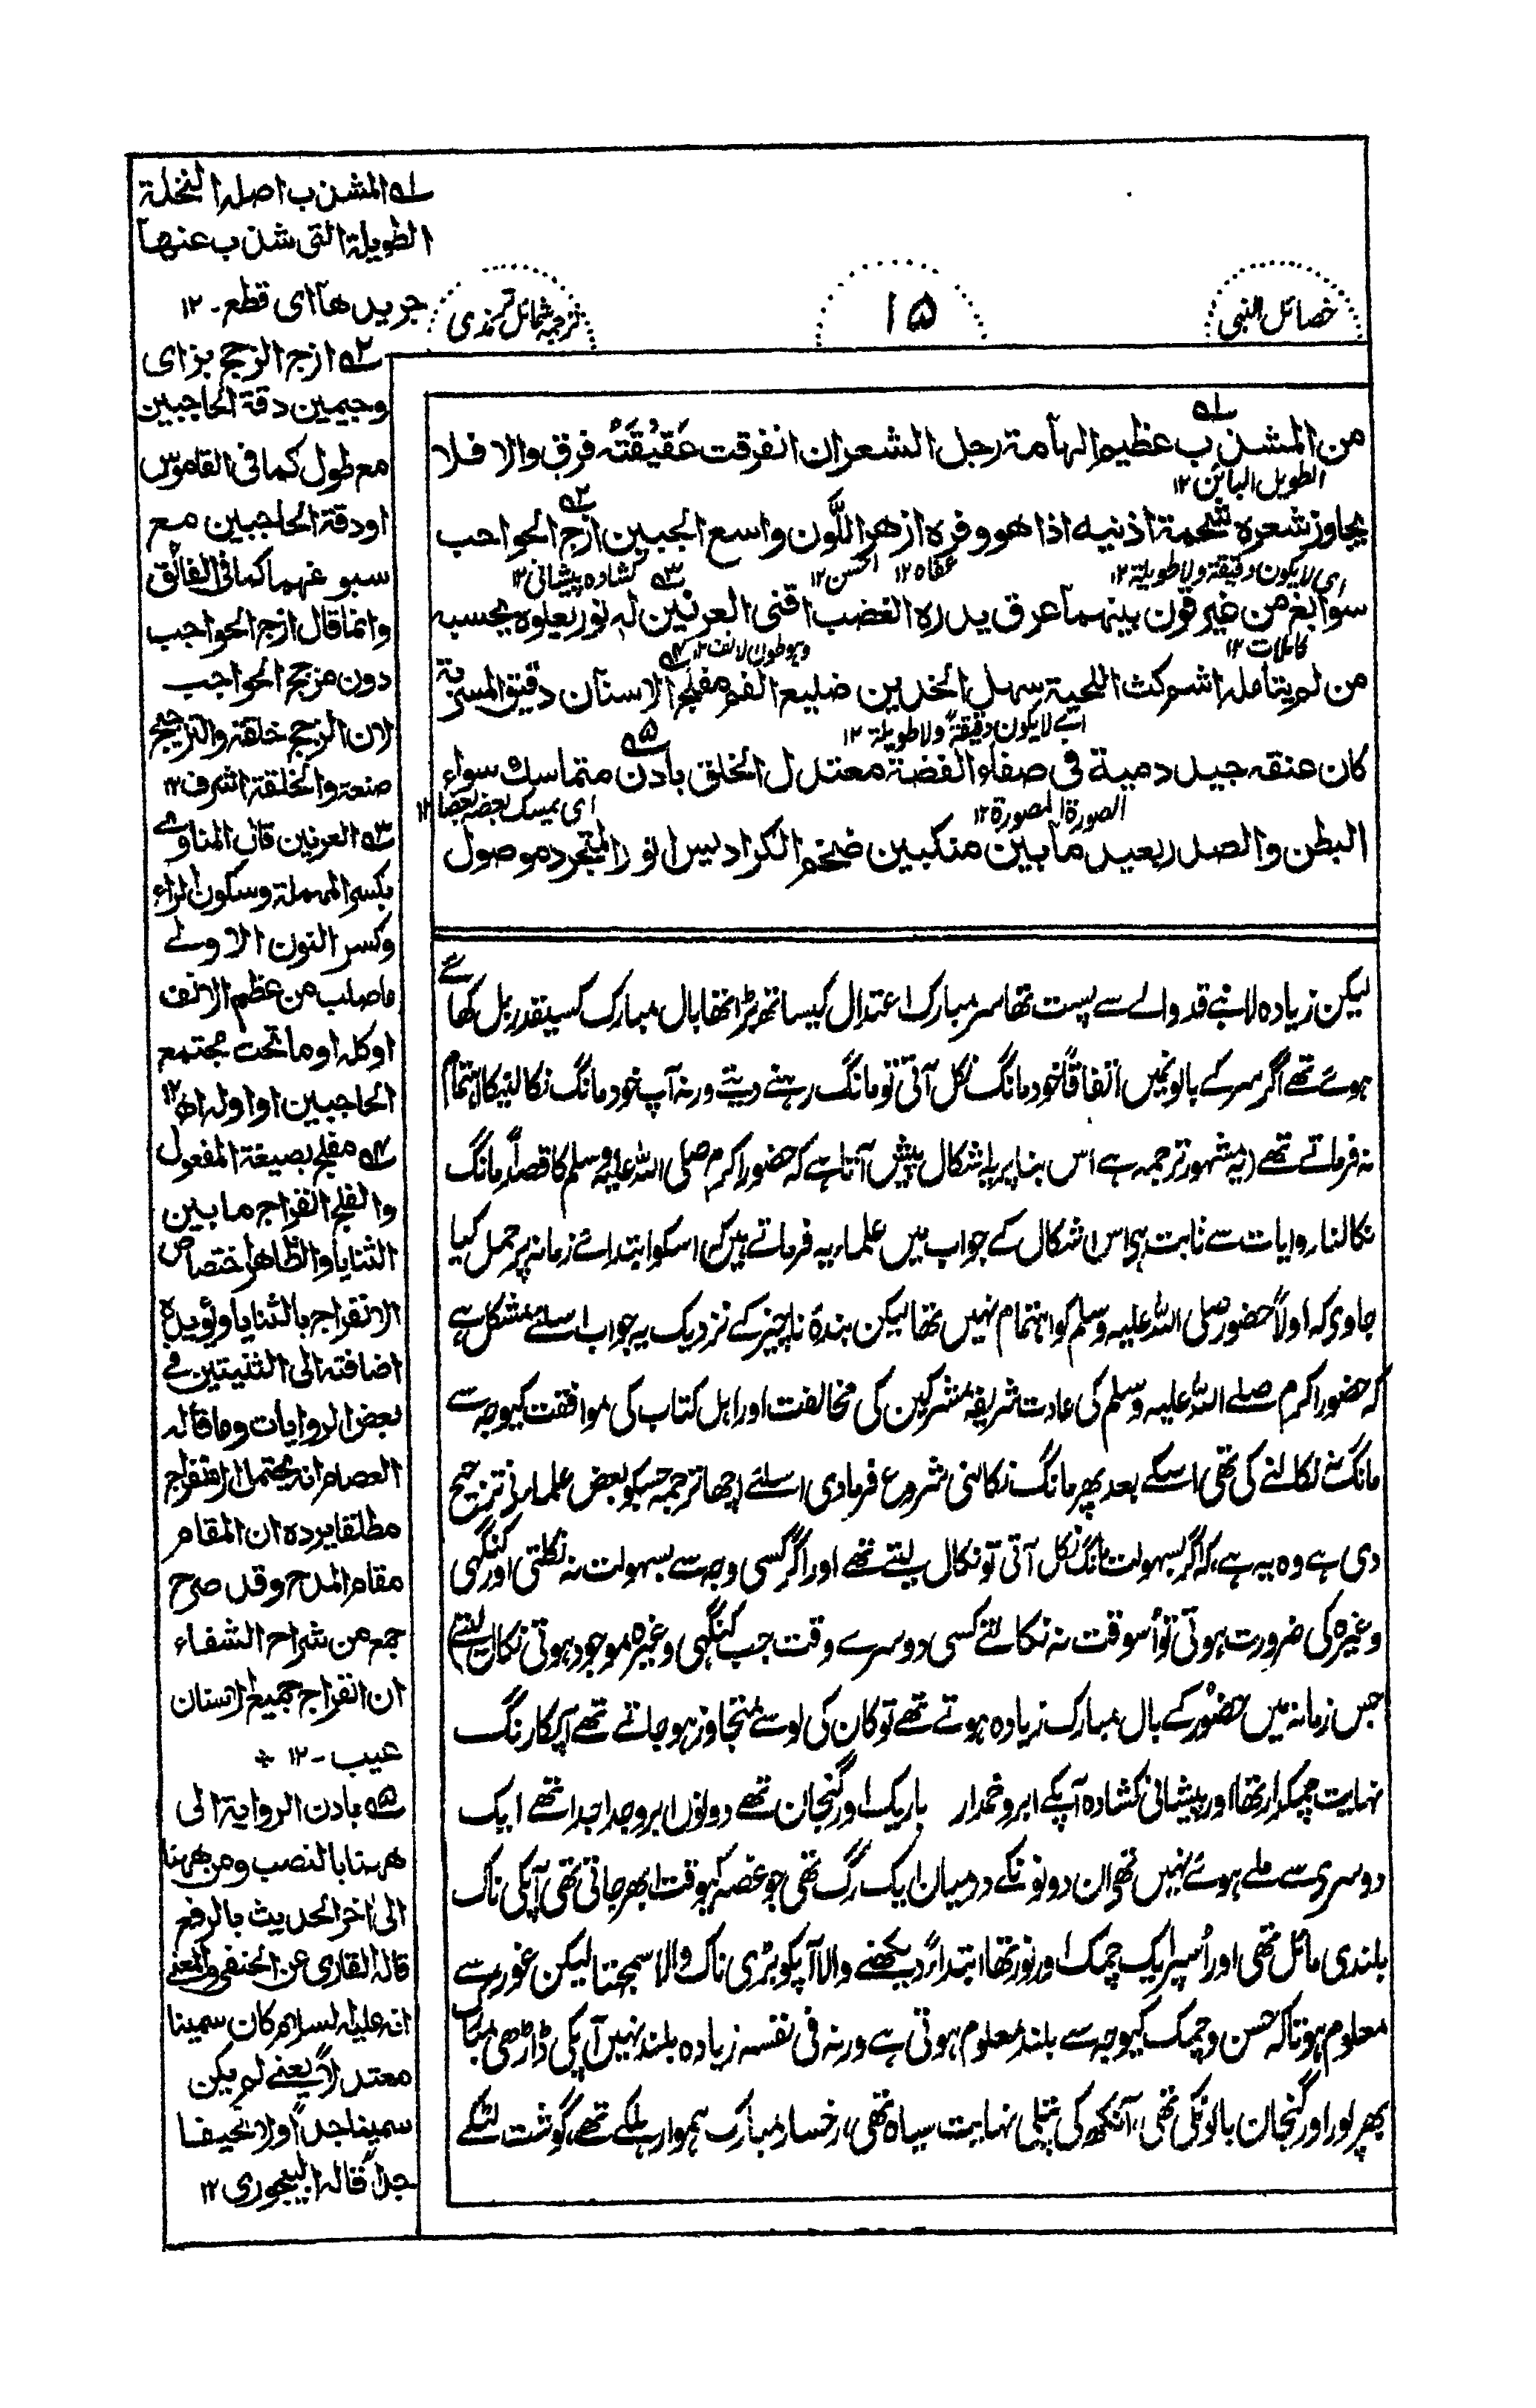 خصائل النبی
۱۵
ترجمہ شمائل ترمذی
من المشذب عظیم الہامة رجل الشعران انفرقت عَقِیْقَتُہ فرق والا فلا
الطویل البائن ۱۲
یجاوز شعرہ شحمة اذنیہ اذا ھو وفرہ ازھر اللَّون واسع الجبین ازج الحواجب
ای لا یکون دقیقة ولا طویلة ۱۲
عفاہ ۱۲
احسن ۱۲
کشادہ پیشانی ۱۲
سوابغ من غیر قرن بینھما عرق یدرہ الغضب اقنی العرنین لہ نور یعلوہ یحسبہ
کاملات ۱۲
من لم یتاملہ اشم کث اللحیة سہل الخدین ضلیع الفم مفلج الاسنان دقیق المسربة
اے لا یکون دقیقةً ولا طویلة ۱۲
کان عنقہ جید دمیة فی صفاء الفضة معتدل الخلق بادن متماسک سواء
الصورة المصورة ۱۲
ای یمسک بعضہ بعضا ۱۲
البطن والصدر بعید مابین منکبین ضخم الکرادیس انور المتجرد موصول
لیکن زیادہ لانبے قد والے سے پست تھا سر مبارک اعتدال کیساتھ بڑا تھا بال مبارک کسیقدر بل کھائے
ہوئے تھے اگر سر کے بالونمیں اتفاقاً خود مانگ نکل آتی تو مانگ رہنے دیتے ورنہ آپ خود مانگ نکالنیکا اہتمام
نہ فرماتے تھے (یہ مشہور ترجمہ ہے اس بنا پر یہ اشکال پیش آتا ہے کہ حضور اکرم صلی اللہ علیہ وسلم کا قصداً مانگ
نکالنا روایات سے ثابت ہی اس اشکال کے جواب میں علماء یہ فرماتے ہیں کہ اسکو ابتدائے زمانہ پر حمل کیا
جاوی کہ اولاً حضور صلی اللہ علیہ وسلم کو اہتمام نہیں تھا لیکن بندۂ ناچیز کے نزدیک یہ جواب اسلئے مشکل ہے
کہ حضور اکرم صلے اللہ علیہ وسلم کی عادت شریفہ مشرکین کی مخالفت اور اہل کتاب کی موافقت کیوجہ سے
مانگ نہ نکالنے کی تھی اسکے بعد پھر مانگ نکالنی شروع فرمادی اسلئے اچھا ترجمہ جسکو بعض علماء نی ترجیح
دی ہے وہ یہ ہے کہ اگر بسہولت مانگ نکل آتی تو نکال لیتے تھے اور اگر کسی وجہ سے بسہولت نہ نکلتی اور کنگھی
وغیرہ کی ضرورت ہوتی تو اُسوقت نہ نکالتے کسی دوسرے وقت جب کنگھی وغیرہ موجود ہوتی نکال لیتے)
جس زمانہ میں حضورؐ کے بال مبارک زیادہ ہوتے تھے تو کان کی لو سے متجاوز ہو جاتے تھے آپکا رنگ
نہایت چمکدار تھا اور پیشانی کشادہ آپکے ابرو خمدار باریک اور گنجان تھے دونوں ابرو جدا جدا تھے ایک
دوسری سے ملے ہوئے نہیں تھی ان دونونکے درمیان ایک رگ تھی جو غصہ کیوقت ابھر جاتی تھی آپکی ناک
بلندی مائل تھی اور اُسپر ایک چمک اور نور تھا ابتداءً دیکھنے والا آپکو بڑی ناک والا سمجھتا لیکن غور سے
معلوم ہوتا کہ حسن و چمک کیوجہ سے بلند معلوم ہوتی ہے ورنہ فی نفسہ زیادہ بلند نہیں آپکی ڈاڑھی مبارک
بھرپور اور گنجان بالونکی تھی، آنکھ کی پتلی نہایت سیاہ تھی، رخسار مبارک ہموار ہلکے تھے، گوشت لٹکے
۱؎ المشذب اصلہ النخلة
الطویلة التی شذب عنھا
جریدھا ای قطع۔ ۱۲
۲؎ ازج الزجج بزای
وجیمین دقة الحاجبین
مع طول کما فی القاموس
او دقة الحاجبین مع
سبوغھما کما فی الفائق
وانما قال ازج الحواجب
دون مزجج الحواجب
لان الزجج خلقة والتزجیج
صنعة والخلقة اشرف ۱۲
۳؎ العرنین قال المناوی
بکسر المہملة وسکون الراء
وکسر النون الاولے
ماصلب من عظم الانف
او کلہ او ما تحت مجتمع
الحاجبین او اولہ اھ ۱۲
۴؎ مفلج بصیغة المفعول
والفلج انفراج مابین
الثنایا والظاھر اختصاص
الانفراج بالثنایا ویؤیدہ
اضافتہ الی الثنیتین فی
بعض الروایات وما قالہ
العصام انہ یحتمل الانفراج
مطلقا یردہ ان المقام
مقام المدح وقد صرح
جمع من شراح الشفاء
ان انفراج جمیع الاسنان
عیب۔ ۱۲ *
۵؎ بادن الروایة الی
ھہنا بالنصب ومن ھہنا
الی اخر الحدیث بالرفع
قالہ القاری عن الحنفی والمعنی
انہ علیہ السلام کان سمینا
معتدلاً یعنے لم یکن
سمینا جداً ولا نحیفا
جداً قالہ البیجوری ۱۲